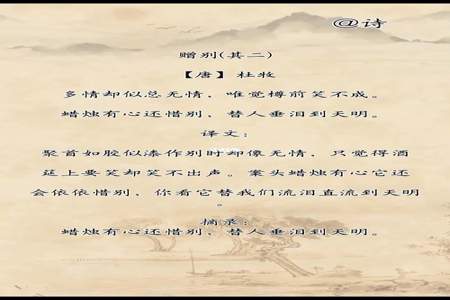 @诗
赠别(其二)
【唐】 杜牧
多情却似总无情，唯觉樽前笑不成。
蜡烛有心还惜别，替人垂泪到天明。
译文：
聚首如胶似漆作别时却像无情，只觉得酒
筵上要笑却笑不出声。案头蜡烛有心它还
会依依惜别，你看它替我们流泪直流到天明
。
摘录：
蜡烛有心还惜别，替人垂泪到天明。